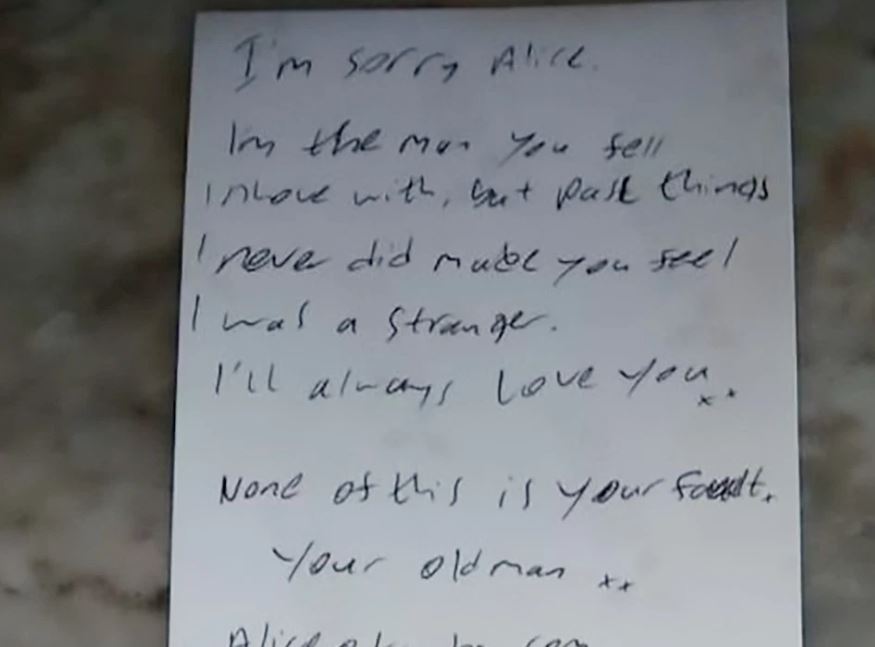 I'm sorry Alice.
Im the man you fell
in love with, but past things
I never did made you feel
I was a stranger.
I'll always love you xx
None of this is your fault.
Your old man xx
Alice